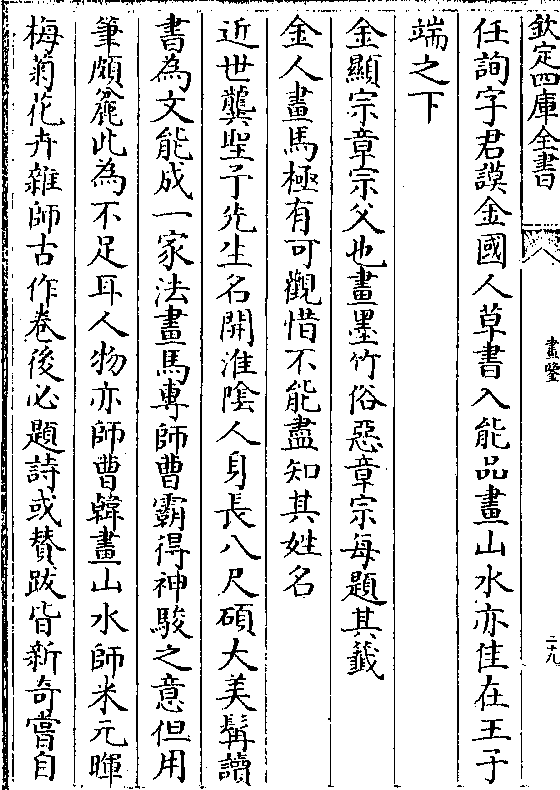 欽定四庫全書
畫鑒
二九
任詢字君謨金國人草書入能品畫山水亦佳在王子
端之下
金顯宗章宗父也畫墨竹俗惡章宗每題其籖
金人畫馬極有可觀惜不能盡知其姓名
近世龔聖予先生名開淮陰人身長八尺碩大美髯讀
書為文能成一家法畫馬專師曹霸得神駿之意但用
筆頗麄此為不足耳人物亦師曹韓畫山水師米元暉
梅菊花卉雜師古作卷後必題詩或賛跋皆新奇嘗自